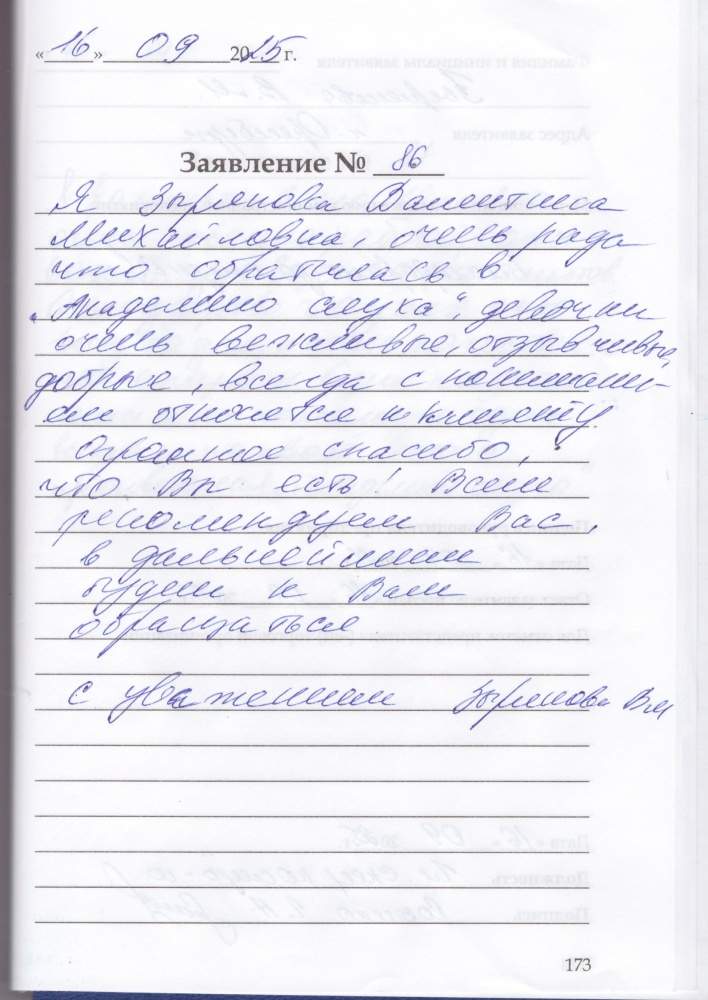 «16» 09 2025 г.
Заявление № 86
Я Зырянова Валентина
Михайловна, очень рада
что обратилась в
"Академию слуха", девочки
очень вежливые, отзывчивые,
добрые, всегда с понимани-
ем относятся к клиенту
огромное спасибо,
что Вы есть! Всем
рекомендуем Вас,
в дальнейшем
будем к Вам
обращаться
с уважением Зырянова ВМ
173